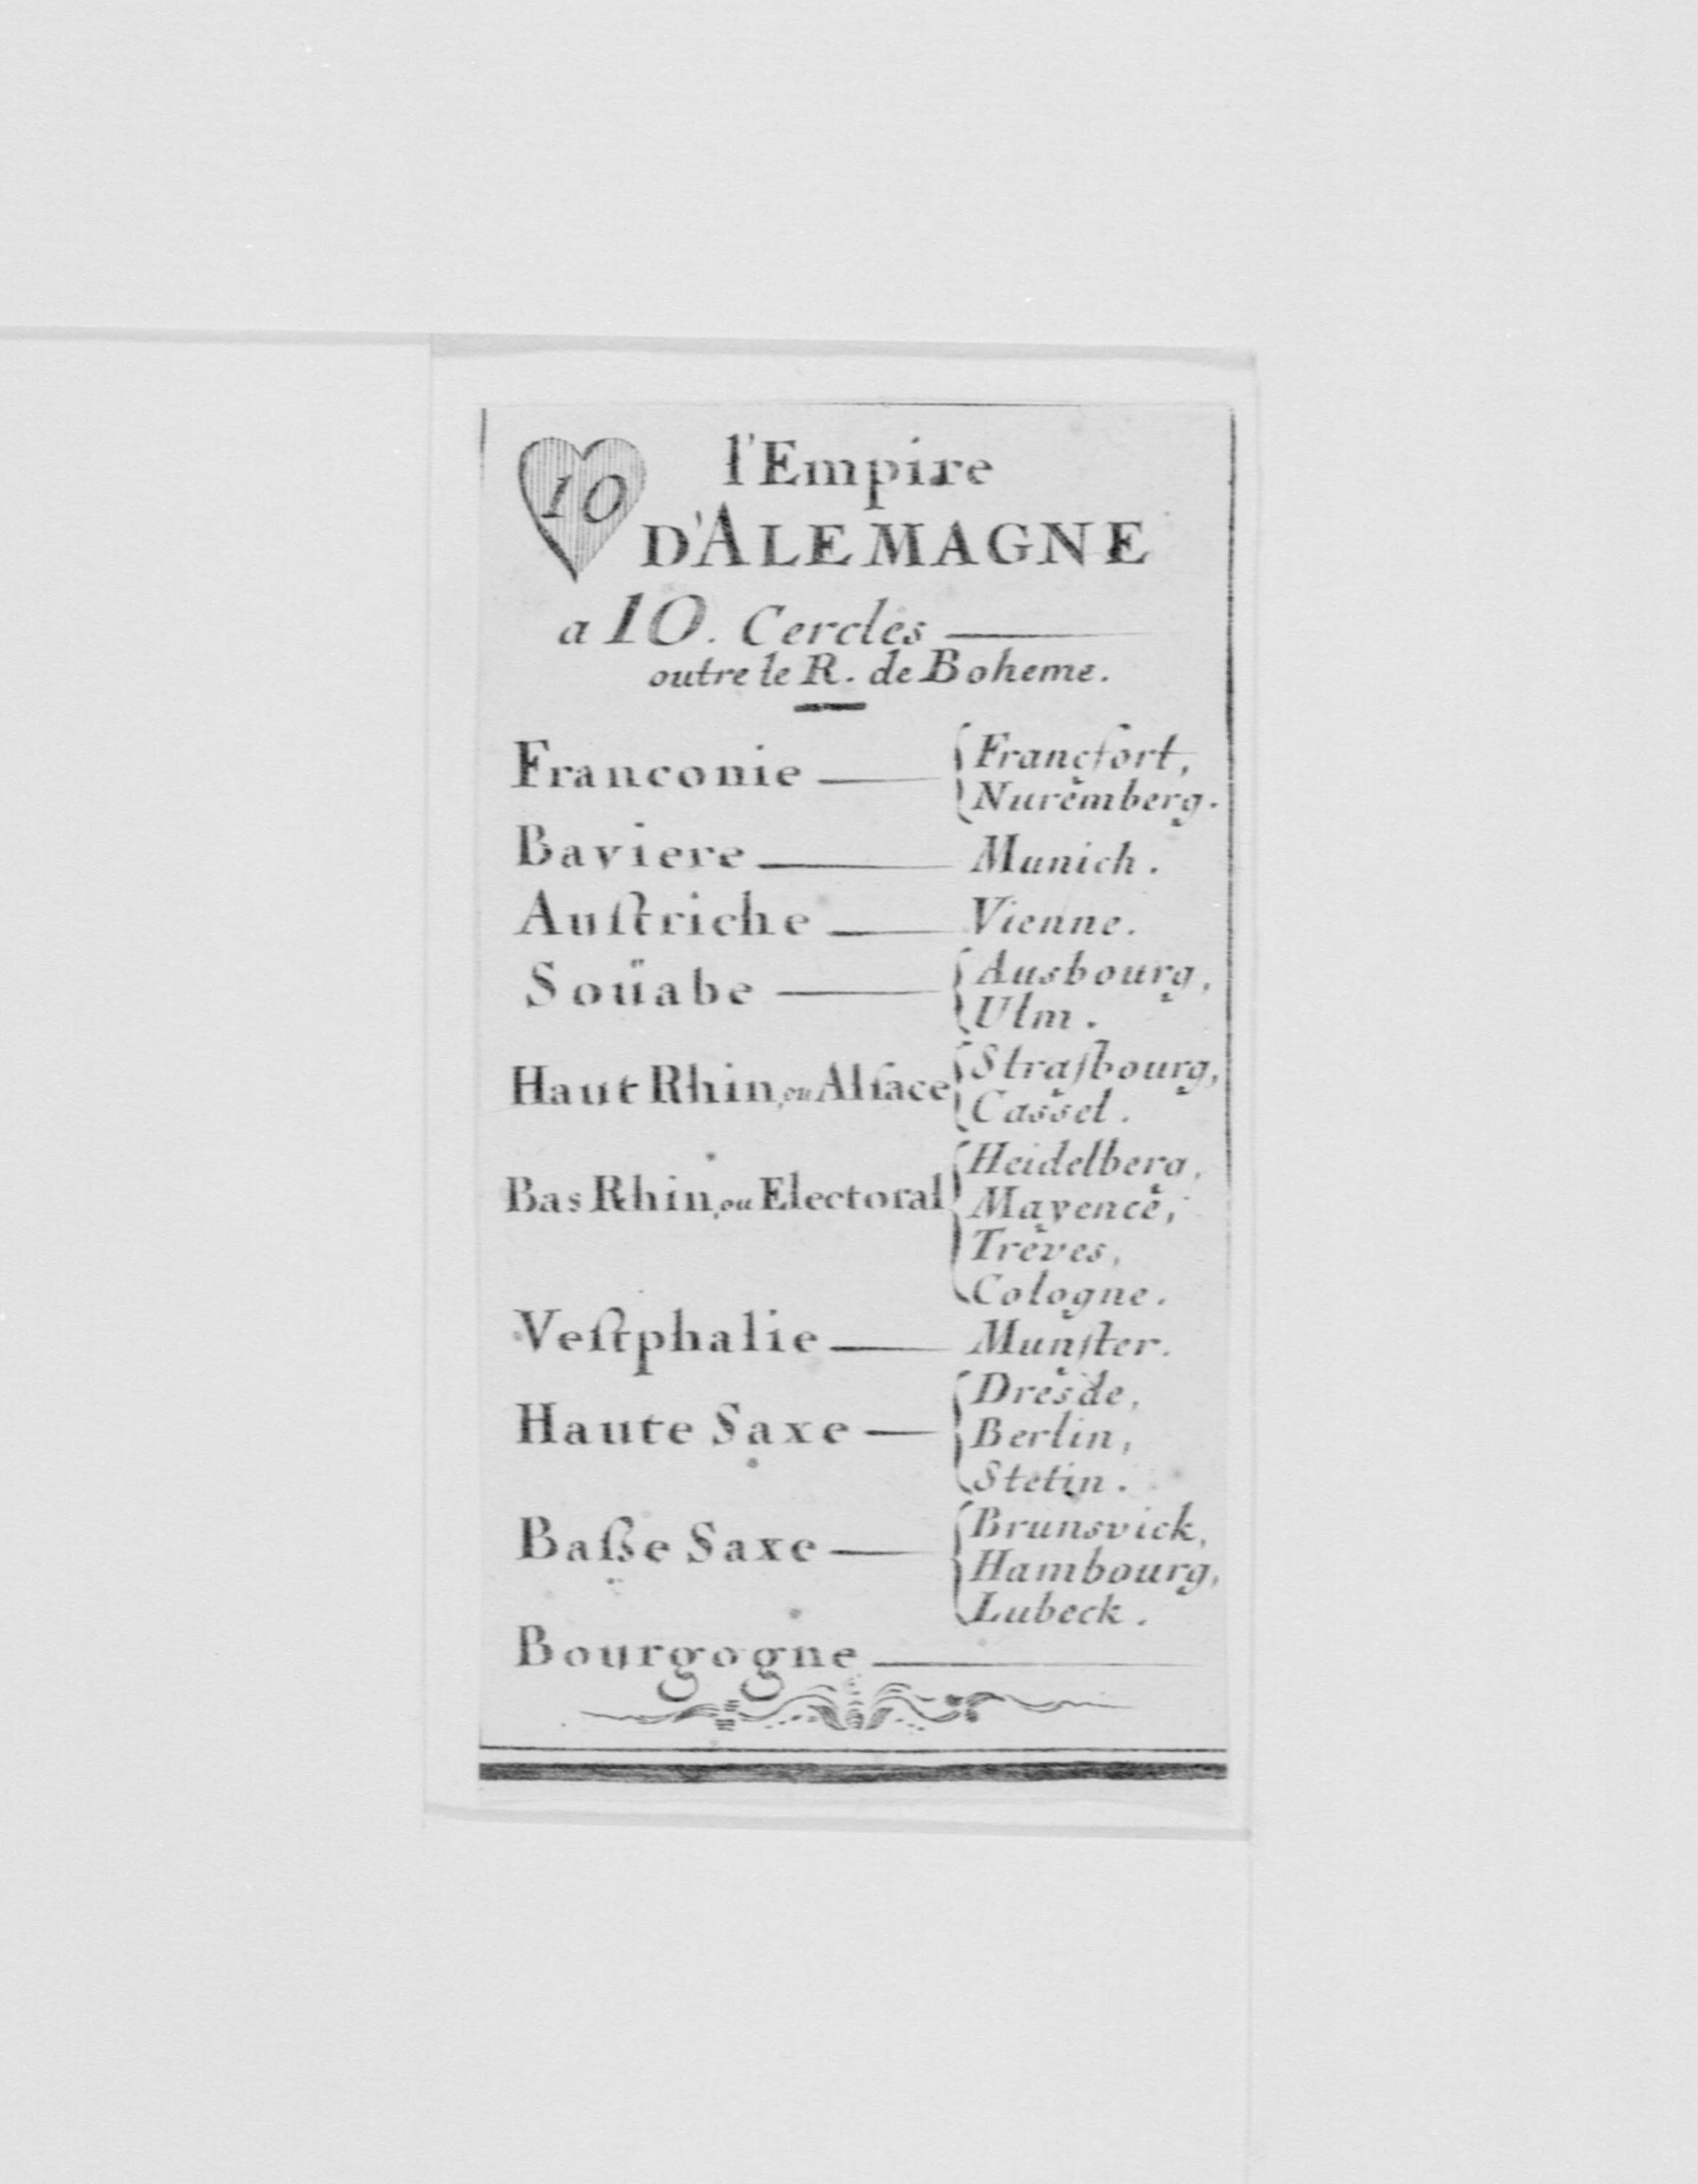 10
l'Empire
D'ALEMAGNE
a 10. Cercles
outre le R. de Boheme.
Franconie — Francfort,
Nuremberg.
Baviere — Munich.
Auſtriche — Vienne.
Soüabe — Ausbourg,
Ulm.
Haut Rhin, ou Alſace Straſbourg,
Cassel.
Bas Rhin, ou Electoral Heidelberg,
Mayence,
Trèves,
Cologne.
Veſtphalie — Munſter.
Haute Saxe — Dresde,
Berlin,
Stetin.
Baſse Saxe — Brunsvick,
Hambourg,
Lubeck.
Bourgogne —